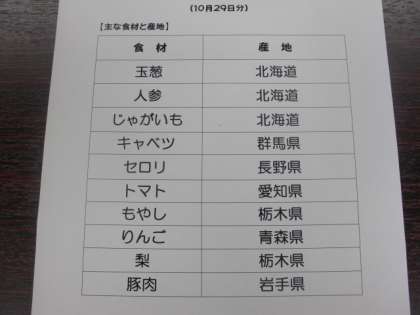 (10月29日分)
【主な食材と産地】
食 材 産 地
玉葱 北海道
人参 北海道
じゃがいも 北海道
キャベツ 群馬県
セロリ 長野県
トマト 愛知県
もやし 栃木県
りんご 青森県
梨 栃木県
豚肉 岩手県